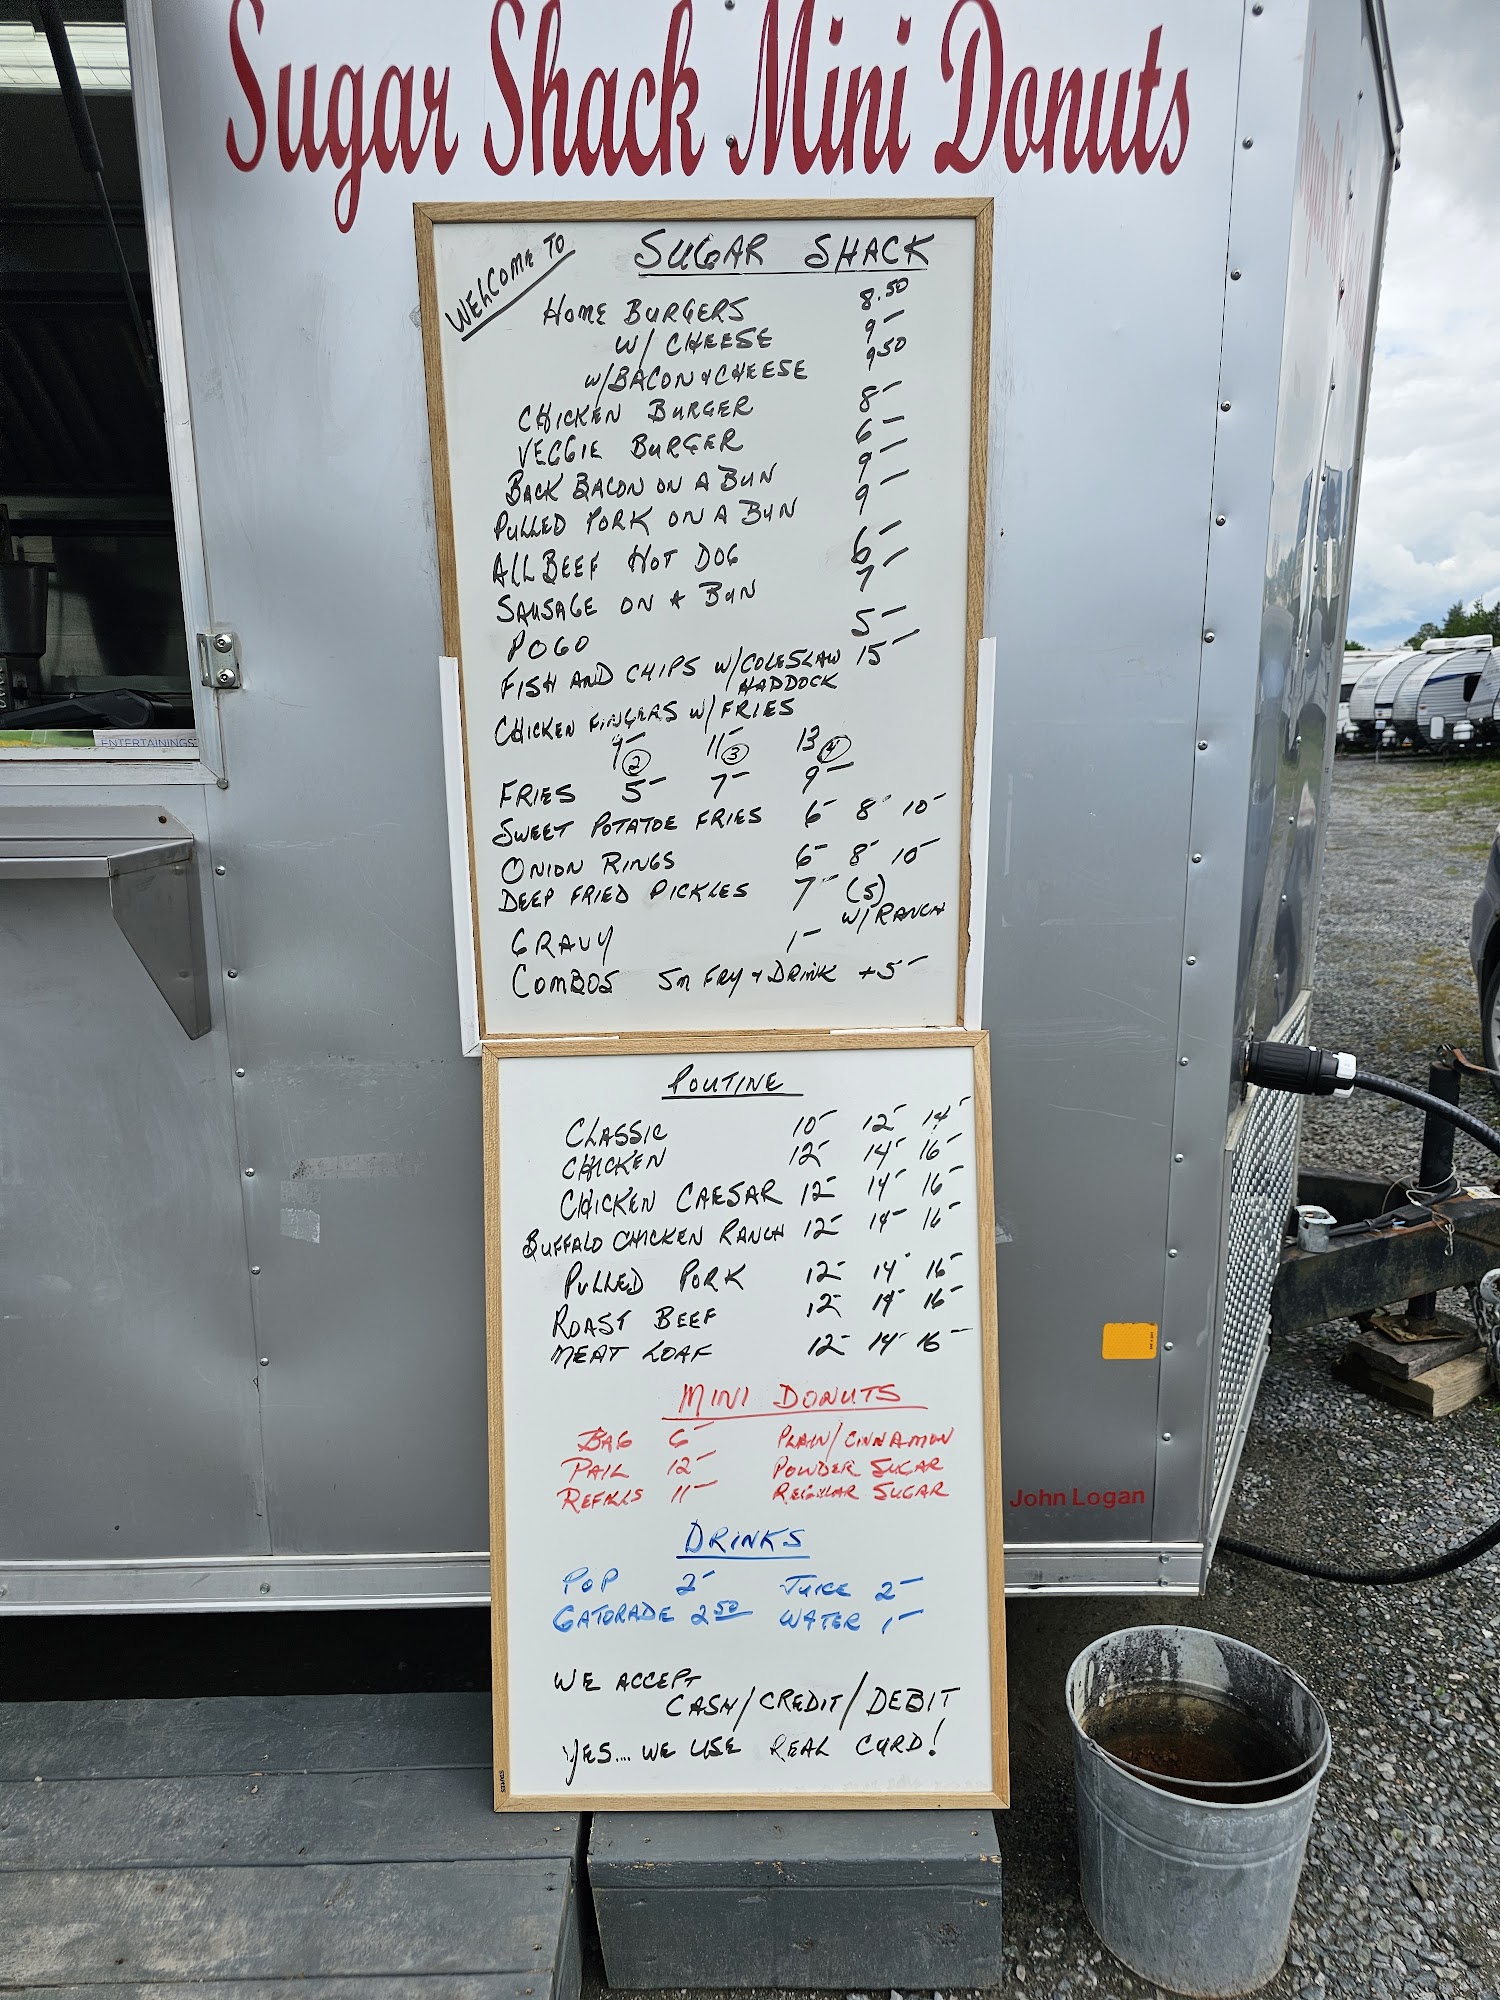 Sugar Shack Mini Donuts
WELCOME TO SUGAR SHACK
HOME BURGERS 8.50
W/ CHEESE 9-
W/BACON & CHEESE 9 50
CHICKEN BURGER 8-
VEGGIE BURGER 6-
BACK BACON ON A BUN 9-
PULLED PORK ON A BUN 9-
ALL BEEF HOT DOG 6-
SAUSAGE ON A BUN 7-
POGO 5-
FISH AND CHIPS W/COLESLAW 15-
HADDOCK
CHICKEN FINGERS W/FRIES
9- (2) 11- (3) 13 (4)
FRIES 5- 7- 9-
SWEET POTATOE FRIES 6- 8- 10-
ONION RINGS 6- 8- 10-
DEEP FRIED PICKLES 7- (5)
W/RANCH
GRAVY 1-
COMBOS Sm FRY + DRINK +5-
POUTINE
CLASSIC 10- 12- 14-
CHICKEN 12- 14- 16-
CHICKEN CAESAR 12- 14- 16-
BUFFALO CHICKEN RANCH 12- 14- 16-
PULLED PORK 12- 14- 16-
ROAST BEEF 12- 14- 16-
MEAT LOAF 12- 14- 16-
MINI DONUTS
BAG 6- PLAIN/CINNAMON
PAIL 12- POWDER SUGAR
REFILLS 11- REGULAR SUGAR
DRINKS
POP 2- JUICE 2-
GATORADE 2 50 WATER 1-
WE ACCEPT
CASH/CREDIT/DEBIT
YES.... WE USE REAL CURD!
John Logan
ENTERTAININGS